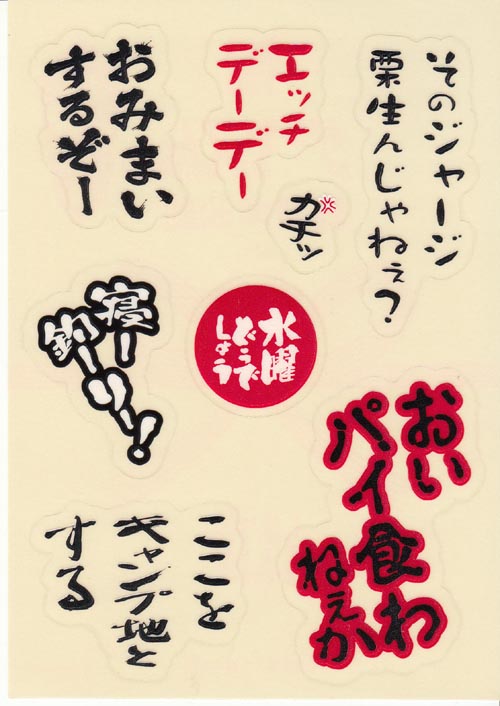 そのジャージ
栗生んじゃねぇ？
エッチ
デーデー
おみまい
するぞー
カチッ
寝ー
釣ーり！
水曜
どうで
しょう
おい
パイ食わ
ねぇか
ここを
キャンプ地と
する